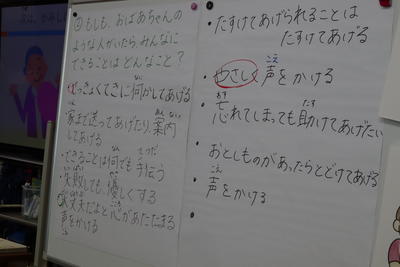 ④もしも、おばあちゃんの
ような人がいたら、みんなに
できることはどんなこと？
・せっきょくてきに何かしてあげる
・家まで送ってあげたり、案内
してあげる
・できることは何でも手伝う
・失敗しても、優しくする
・大丈夫だよと心があたたまる
声をかける
・たすけてあげられることは
たすけてあげる
・やさしく声をかける
・忘れてしまっても助けてあげたい
・おとしものがあったらとどけてあげる
・声をかける